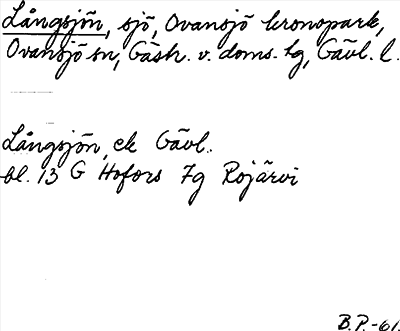 Långsjön, sjö, Ovansjö kronopark,
Ovansjö sn, Gästr. v. doms. hg, Gävl. l.
Långsjön, ek Gävl.
bl. 13 G Hofors 7g Rojärvi
B.P.-61.